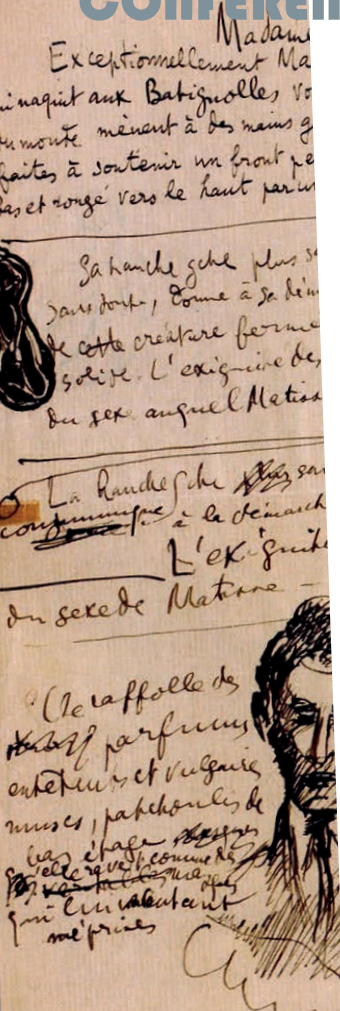 CONFEREN
Madame
Exceptionnellement Ma
naquit aux Batignolles vo
monte mènent à des mains g
faites à soutenir un front pe
bas et rongé vers le haut par un
Sa hanche gche plus s
sans doute, donne à sa dém
de cette créature ferme
solide. L'exiguité des
du sexe auquel Matiss
La hanche gche plus son
communique à la démarch
L'exiguité
du sexe de Matisse —
raffolle des
parfums
entêteurs et vulgaires
muscs, patchoulis de
bas étage
qu'elle revêt comme des
qui lui
méprises